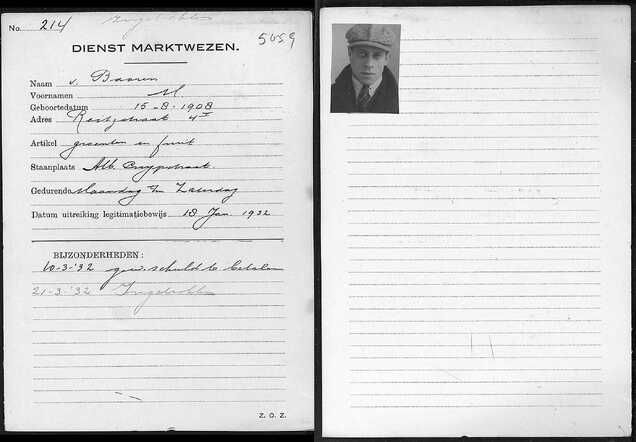 No. 214
5059
DIENST MARKTWEZEN.
Naam v. Baaren
Voornamen M
Geboortedatum 15-8-1908
Adres
Artikel groenten en fruit
Staanplaats Alb. Cuypstraat
Gedurende Maandag t/m Zaterdag
Datum uitreiking legitimatiebewijs 18 Jan 1932
BIJZONDERHEDEN:
10-3-'32 gew. schuld te betalen
21-3-'32 Ingetrokken
Z. O. Z.